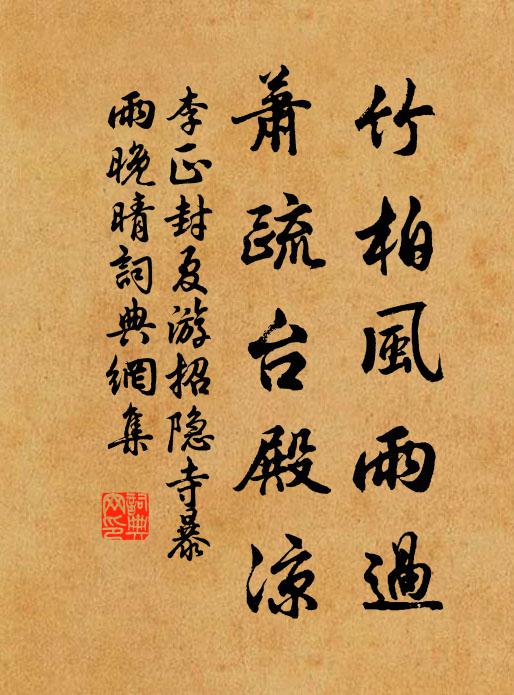 竹柏風雨過
蕭疏台殿涼
李正封夏游招隐寺暴
雨晚晴詞典網集
詞典
网印